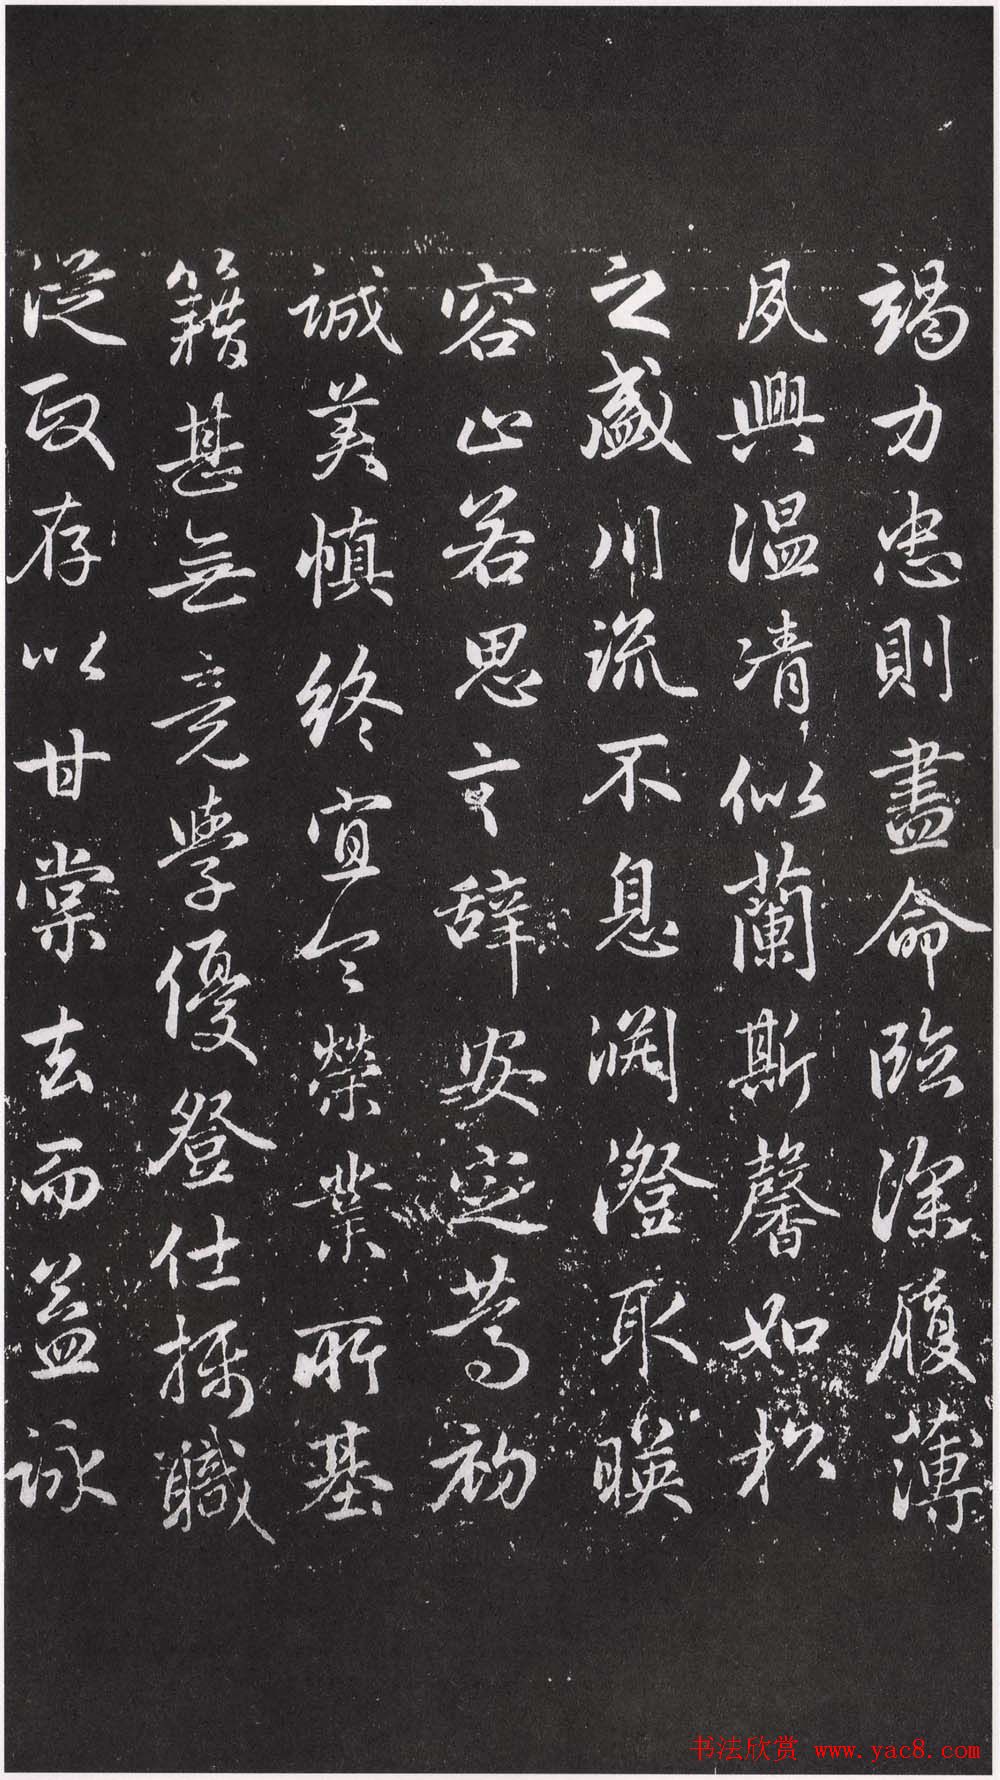 竭力忠則盡命臨深履薄
夙興温凊似蘭斯馨如松
之盛川流不息淵澄取暎
容止若思言辞安定篤初
誠美慎終宜令榮業所基
籍甚無竟學優登仕攝職
從政存以甘棠去而益詠
书法欣赏 www.yac8.com